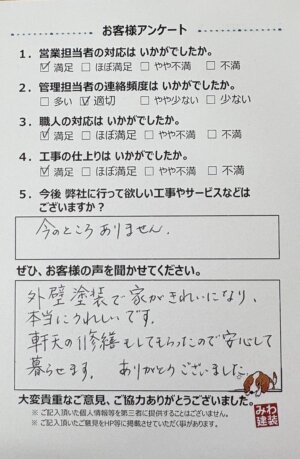 お客様アンケート
1．営業担当者の対応は いかがでしたか。
☑ 満足 □ ほぼ満足 □ やや不満 □ 不満
2．管理担当者の連絡頻度は いかがでしたか。
□ 多い ☑ 適切 □ やや少ない □ 少ない
3．職人の対応は いかがでしたか。
☑ 満足 □ ほぼ満足 □ やや不満 □ 不満
4．工事の仕上りは いかがでしたか。
☑ 満足 □ ほぼ満足 □ やや不満 □ 不満
5．今後 弊社に行って欲しい工事やサービスなどは
ございますか？
今のところありません。
ぜひ、お客様の声を聞かせてください。
外壁塗装で家がきれいになり、
本当にうれしいです。
軒天の修繕もしてもらったので安心して
暮らせます。 ありがとうございました
大変貴重なご意見、ご協力ありがとうございました。
※ ご記入頂いた個人情報等を第三者に提供することはございません。
※ ご記入頂いたご意見をHP等に掲載させていただく事があります。
みわ
建装